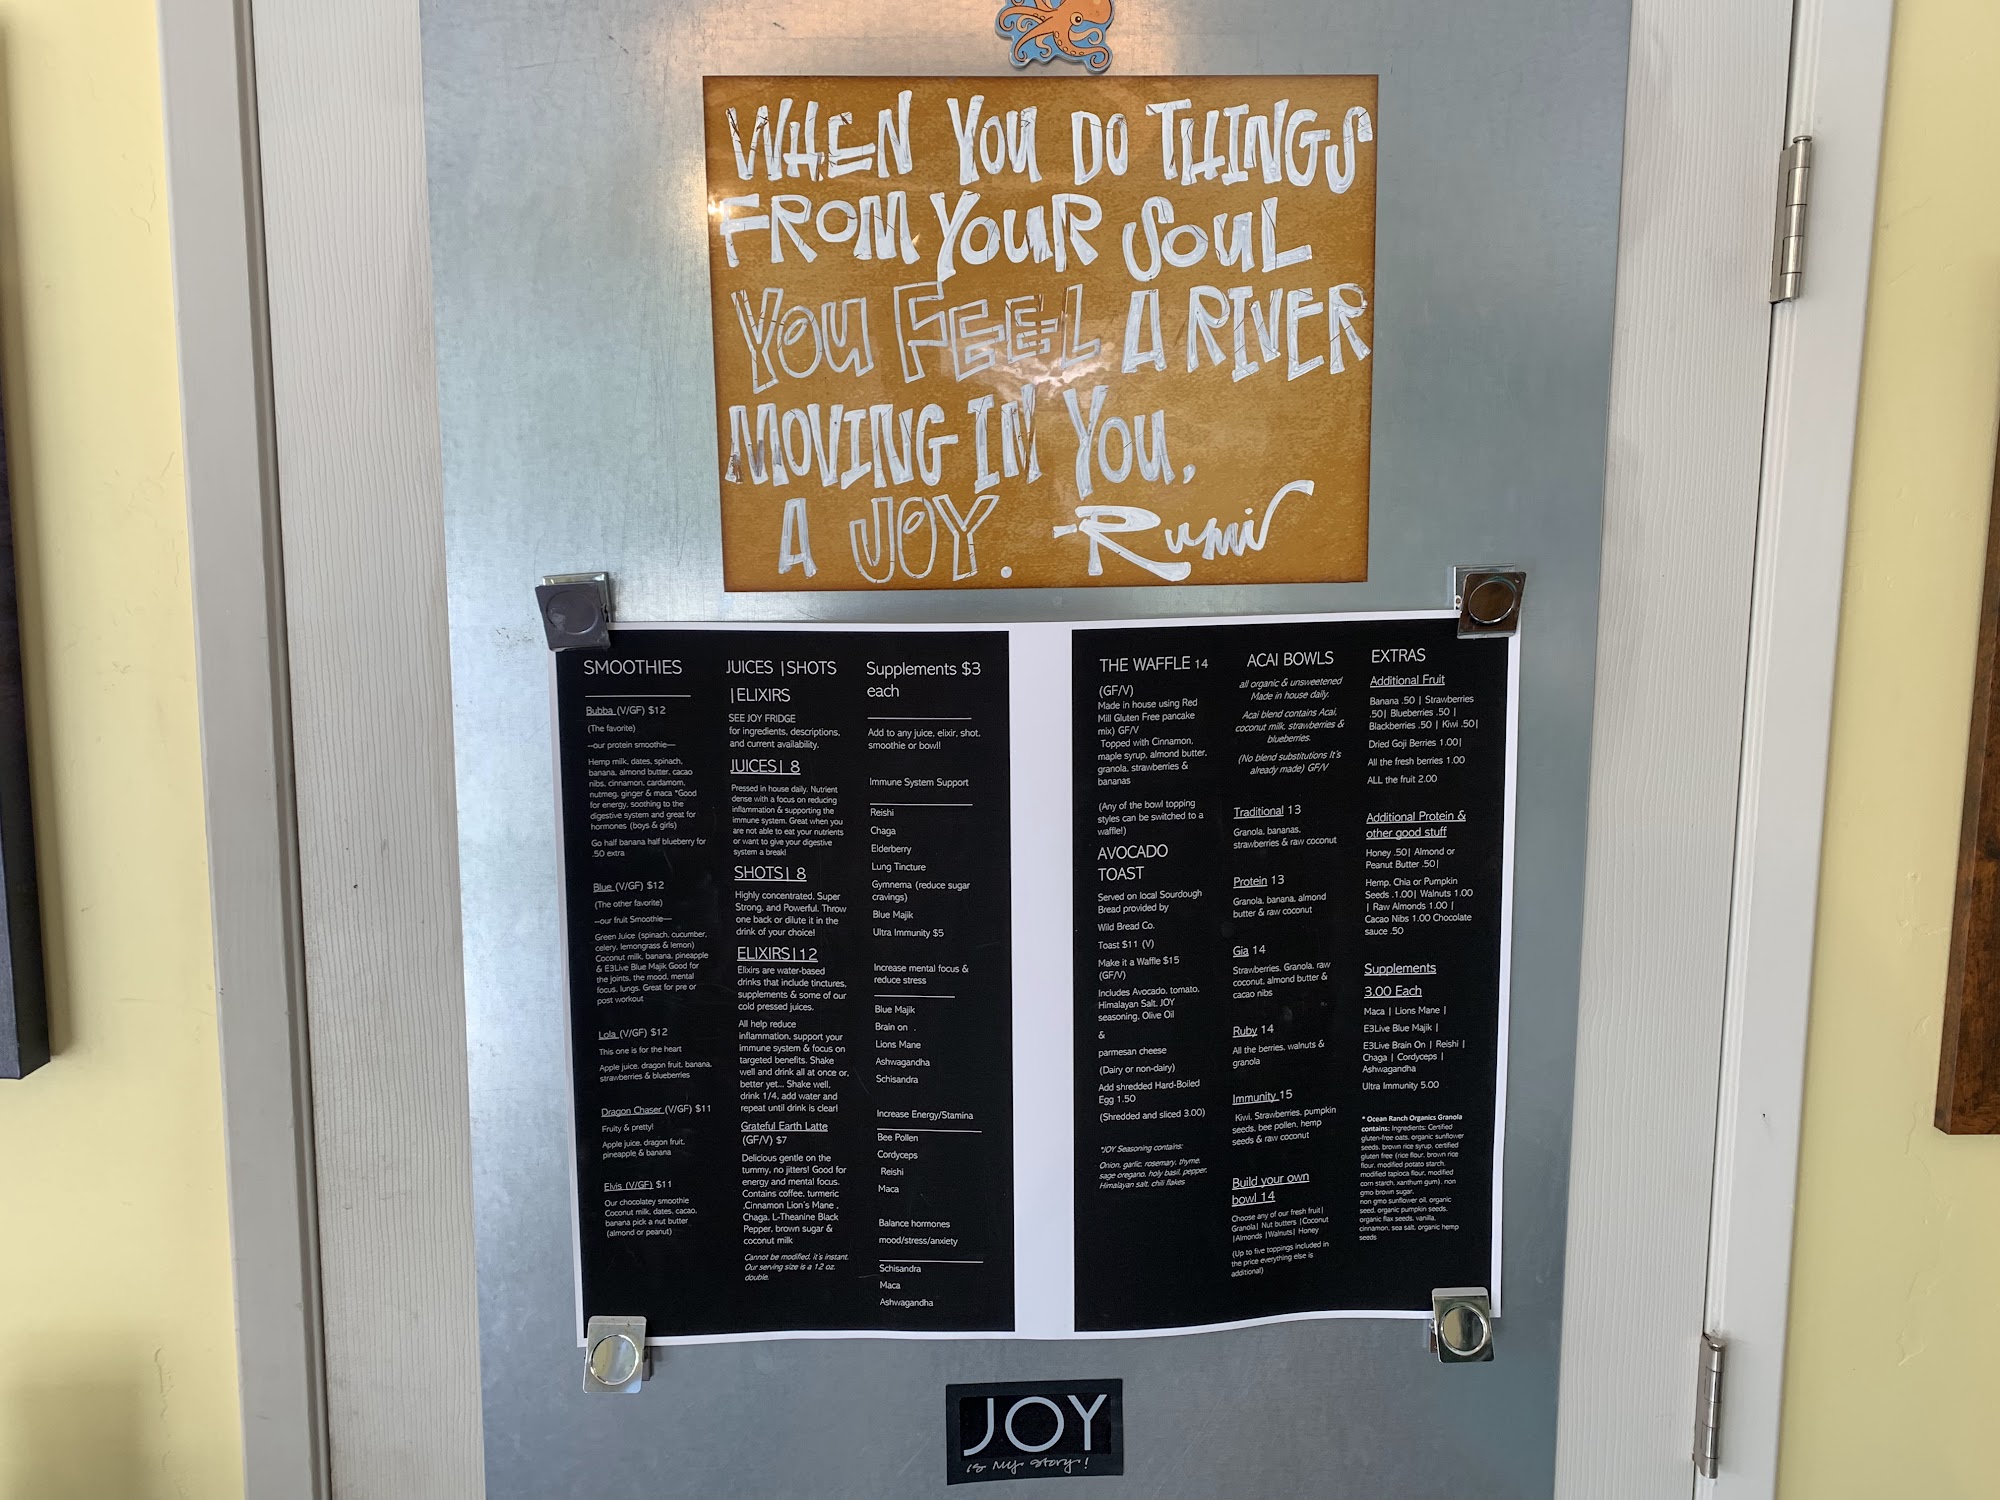 WHEN YOU DO THINGS
FROM YOUR SOUL
YOU FEEL A RIVER
MOVING IN YOU,
A JOY. -Rumi
SMOOTHIES
Bubba (V/GF) $12
(The favorite)
—our protein smoothie—
Hemp milk, dates, spinach,
banana, almond butter, cacao
nibs, cinnamon, cardamom,
nutmeg, ginger & maca *Good
for energy, soothing to the
digestive system and great for
hormones (boys & girls)
Go half banana half blueberry for
.50 extra
Blue (V/GF) $12
(The other favorite)
—our fruit Smoothie—
Green Juice (spinach, cucumber,
celery, lemongrass & lemon)
Coconut milk, banana, pineapple
& E3Live Blue Majik Good for
the joints, the mood, mental
focus, lungs. Great for pre or
post workout
Lola (V/GF) $12
This one is for the heart
Apple juice, dragon fruit, banana,
strawberries & blueberries
Dragon Chaser (V/GF) $11
Fruity & pretty!
Apple juice, dragon fruit,
pineapple & banana
Elvis (V/GF) $11
Our chocolatey smoothie
Coconut milk, dates, cacao,
banana pick a nut butter
(almond or peanut)
JUICES |SHOTS
|ELIXIRS
SEE JOY FRIDGE
for ingredients, descriptions,
and current availability.
JUICES| 8
Pressed in house daily. Nutrient
dense with a focus on reducing
inflammation & supporting the
immune system. Great when you
are not able to eat your nutrients
or want to give your digestive
system a break!
SHOTS| 8
Highly concentrated, Super
Strong, and Powerful. Throw
one back or dilute it in the
drink of your choice!
ELIXIRS|12
Elixirs are water-based
drinks that include tinctures,
supplements & some of our
cold pressed juices.
All help reduce
inflammation, support your
immune system & focus on
targeted benefits. Shake
well and drink all at once or,
better yet... Shake well,
drink 1/4, add water and
repeat until drink is clear!
Grateful Earth Latte
(GF/V) $7
Delicious gentle on the
tummy, no jitters! Good for
energy and mental focus.
Contains coffee, turmeric
,Cinnamon Lion's Mane ,
Chaga, L-Theanine Black
Pepper, brown sugar &
coconut milk
Cannot be modified, it's instant.
Our serving size is a 12 oz.
double.
Supplements $3
each
Add to any juice, elixir, shot,
smoothie or bowl!
Immune System Support
Reishi
Chaga
Elderberry
Lung Tincture
Gymnema (reduce sugar
cravings)
Blue Majik
Ultra Immunity $5
Increase mental focus &
reduce stress
Blue Majik
Brain on .
Lions Mane
Ashwagandha
Schisandra
Increase Energy/Stamina
Bee Pollen
Cordyceps
Reishi
Maca
Balance hormones
mood/stress/anxiety
Schisandra
Maca
Ashwagandha
THE WAFFLE 14
(GF/V)
Made in house using Red
Mill Gluten Free pancake
mix) GF/V
Topped with Cinnamon,
maple syrup, almond butter,
granola, strawberries &
bananas
(Any of the bowl topping
styles can be switched to a
waffle!)
AVOCADO
TOAST
Served on local Sourdough
Bread provided by
Wild Bread Co.
Toast $11 (V)
Make it a Waffle $15
(GF/V)
Includes Avocado, tomato,
Himalayan Salt, JOY
seasoning, Olive Oil
&
parmesan cheese
(Dairy or non-dairy)
Add shredded Hard-Boiled
Egg 1.50
(Shredded and sliced 3.00)
*JOY Seasoning contains:
Onion, garlic, rosemary, thyme,
sage oregano, holy basil, pepper,
Himalayan salt, chili flakes
ACAI BOWLS
all organic & unsweetened
Made in house daily.
Acai blend contains Acai,
coconut milk, strawberries &
blueberries.
(No blend substitutions It's
already made) GF/V
Traditional 13
Granola, bananas,
strawberries & raw coconut
Protein 13
Granola, banana, almond
butter & raw coconut
Gia 14
Strawberries, Granola, raw
coconut, almond butter &
cacao nibs
Ruby 14
All the berries, walnuts &
granola
Immunity 15
Kiwi, Strawberries, pumpkin
seeds, bee pollen, hemp
seeds & raw coconut
Build your own
bowl 14
Choose any of our fresh fruit|
Granola| Nut butters |Coconut
|Almonds |Walnuts| Honey
(Up to five toppings included in
the price everything else is
additional)
EXTRAS
Additional Fruit
Banana .50 | Strawberries
.50| Blueberries .50 |
Blackberries .50 | Kiwi .50|
Dried Goji Berries 1.00|
All the fresh berries 1.00
ALL the fruit 2.00
Additional Protein &
other good stuff
Honey .50| Almond or
Peanut Butter .50|
Hemp, Chia or Pumpkin
Seeds .1.00| Walnuts 1.00
| Raw Almonds 1.00 |
Cacao Nibs 1.00 Chocolate
sauce .50
Supplements
3.00 Each
Maca | Lions Mane |
E3Live Blue Majik |
E3Live Brain On | Reishi |
Chaga | Cordyceps |
Ashwagandha
Ultra Immunity 5.00
* Ocean Ranch Organics Granola
contains: Ingredients: Certified
gluten-free oats, organic sunflower
seeds, brown rice syrup, certified
gluten free (rice flour, brown rice
flour, modified potato starch,
modified tapioca flour, modified
corn starch, xanthum gum), non
gmo brown sugar,
non gmo sunflower oil, organic
seed, organic pumpkin seeds,
organic flax seeds, vanilla,
cinnamon, sea salt, organic hemp
seeds
JOY
is my story!